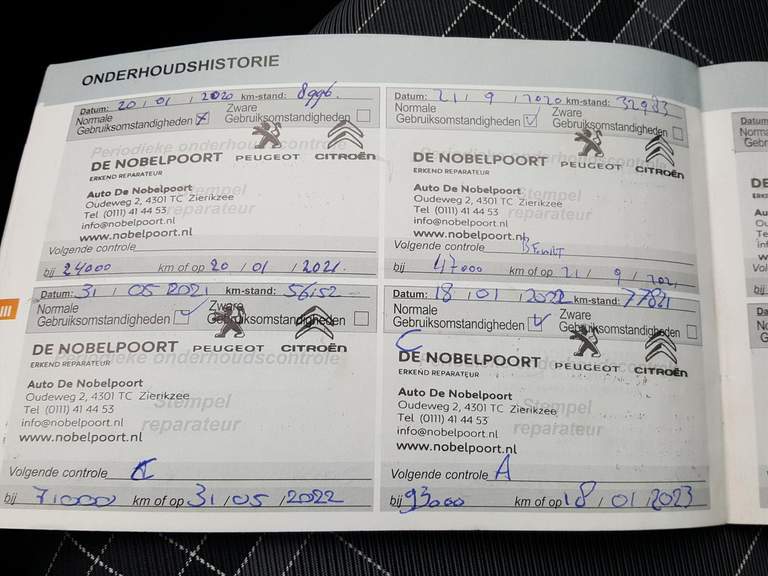 ONDERHOUDSHISTORIE
Datum: 20 / 01 / 2020 km-stand: 8996.
Normale Gebruiksomstandigheden
Zware Gebruiksomstandigheden
Periodieke onderhoudscontrole
DE NOBELPOORT PEUGEOT CITROËN
ERKEND REPARATEUR
Auto De Nobelpoort
Oudeweg 2, 4301 TC Zierikzee
Tel (0111) 41 44 53
info@nobelpoort.nl
www.nobelpoort.nl
Stempel
reparateur
Volgende controle
bij 24000 km of op 20 / 01 / 2021.
Datum: 21 / 9 / 2020 km-stand: 32983
Normale Gebruiksomstandigheden
Zware Gebruiksomstandigheden
Periodieke onderhoudscontrole
DE NOBELPOORT PEUGEOT CITROËN
ERKEND REPARATEUR
Auto De Nobelpoort
Oudeweg 2, 4301 TC Zierikzee
Tel (0111) 41 44 53
info@nobelpoort.nl
www.nobelpoort.nl
Stempel
reparateur
Volgende controle
bij 47000 km of op 21 / 9 / 2021
Datum: 31 / 05 / 2021 km-stand: 56152
Normale Gebruiksomstandigheden
Zware Gebruiksomstandigheden
Periodieke onderhoudscontrole
DE NOBELPOORT PEUGEOT CITROËN
ERKEND REPARATEUR
Auto De Nobelpoort
Oudeweg 2, 4301 TC Zierikzee
Tel (0111) 41 44 53
info@nobelpoort.nl
www.nobelpoort.nl
Stempel
reparateur
Volgende controle C
bij 71000 km of op 31 / 05 / 2022
Datum: 18 / 01 / 2022 km-stand: 77821
Normale Gebruiksomstandigheden
Zware Gebruiksomstandigheden
C
Periodieke onderhoudscontrole
DE NOBELPOORT PEUGEOT CITROËN
ERKEND REPARATEUR
Auto De Nobelpoort
Oudeweg 2, 4301 TC Zierikzee
Tel (0111) 41 44 53
info@nobelpoort.nl
www.nobelpoort.nl
Stempel
reparateur
Volgende controle A
bij 93000 km of op 18 / 01 / 2023
III